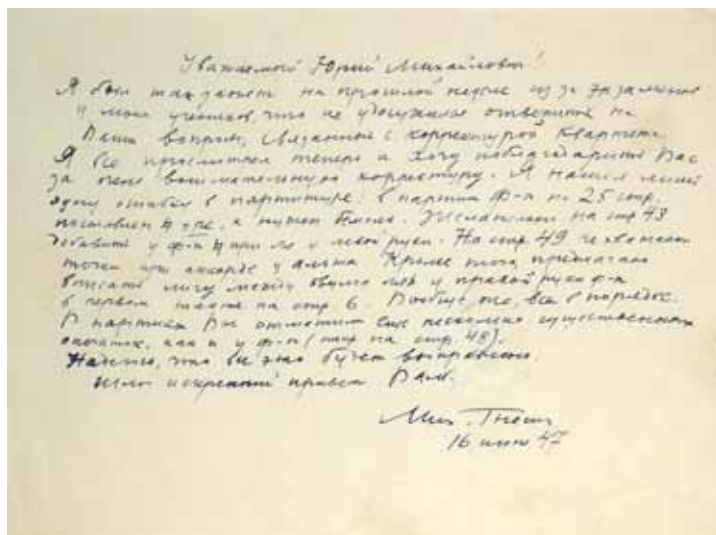 Уважаемый Юрий Михайлович!
Я был так занят на прошлой неделе из за экзаменов
у моих учеников, что не удосужился ответить на
Ваши вопросы, связанные с корректурой Квартета.
Я все просмотрел теперь и хочу поблагодарить Вас
за очень внимательную корректуру. Я нашел лишь
одну ошибку в партитуре: в партии ф-п на 25 стр.
поставлен ♮ ре, а нужен бемоль. Желательно на стр 43
добавить у ф-п ♮ при ля у левой руки. На стр. 49 не хватает
точки при аккорде у альта. Кроме того, предлагаю
вписать лигу между двумя у правой руки ф-п
в первом такте на стр 6. Вообще же, все в порядке.
В партиях Вы отметили еще несколько существенных
опечаток, как и у ф-п ( на стр 48).
Надеюсь, что все это будет исправлено.
Шлю искренний привет Вам.
Мих. Гнесин
16 47